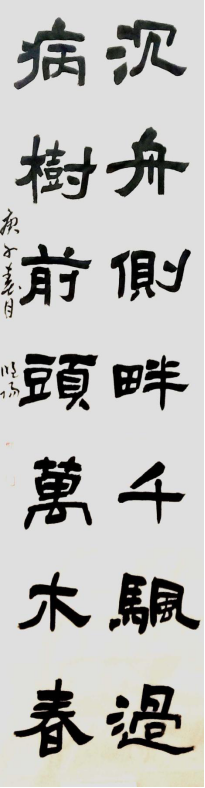 沉舟側畔千颿過
病樹前頭萬木春
庚子春月